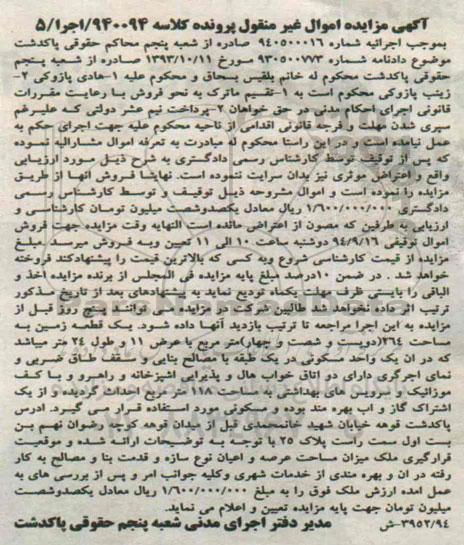 آگهی مزایده اموال غیر منقول پرونده کلاسه ۹۴۰۰۹۴/اجرا/۵
بموجب اجرائیه شماره ۹۴۰۵۰۰۰۱۶ صادره از شعبه پنجم محاکم حقوقی پاکدشت
موضوع دادنامه شماره ۹۳۰۵۰۰۷۷۳ مورخ ۱۳۹۳/۱۰/۱۱ صادره از شعبه پنجم
حقوقی پاکدشت محکوم له خانم بلقیس بسحاق و محکوم علیه ۱-هادی پازوکی ۲-
زینب پازوکی محکوم است به ۱-تقسیم ماترک به نحو فروش با رعایت مقررات
قانونی اجرای احکام مدنی در حق خواهان ۲-پرداخت نیم عشر دولتی که علیرغم
سپری شدن مهلت و فرجه قانونی اقدامی از ناحیه محکوم علیه جهت اجرای حکم به
عمل نیامده است و در این راستا محکوم له مبادرت به تعرفه اموال مشارالیه نموده
که پس از توقیف توسط کارشناس رسمی دادگستری به شرح ذیل مورد ارزیابی
واقع و اعتراض موثری نیز بدان سرایت ننموده است. نهایتا فروش آنها از طریق
مزایده را نموده است و اموال مشروحه ذیل توقیف و توسط کارشناس رسمی
دادگستری ۱/۶۰۰/۰۰۰/۰۰۰ ریال معادل یکصدوشصت میلیون تومان کارشناسی و
ارزیابی به طرفین که مصون از اعتراض مانده است النهایه وقت مزایده جهت فروش
اموال توقیفی ۹۴/۹/۱۶ دوشنبه ساعت ۱۰ الی ۱۱ تعیین وبه فروش میرسد. مبلغ
مزایده از قیمت کارشناسی شروع وبه کسی که بالاترین قیمت را پیشنهادکند فروخته
خواهد شد . در ضمن ۱۰درصد مبلغ پایه مزایده فی المجلس از برنده مزایده اخذ و
الباقی را بایستی ظرف مهلت یکماه تودیع نماید به پیشنهادهای بعد از تاریخ مذکور
ترتیب اثر داده نخواهد شد طالبین شرکت در مزایده می توانند پنج روز قبل از
مزایده به این اجرا مراجعه تا ترتیب بازدید آنها داده شود. یک قطعه زمین به
مساحت ۲۶۴(دویست و شصت و چهار)متر مربع با عرض ۱۱ و طول ۲۴ متر میباشد
که در ان یک واحد مسکونی در یک طبقه با مصالح بنایی و سقف طاق ضربی و
نمای اجرگری دارای دو اتاق خواب هال و پذیرایی اشپزخانه و راهرو و با کف
موزائیک و سرویس های بهداشتی به مساحت ۱۱۸ متر مربع احداث گردیده و از یک
اشتراک گاز و اب بهره مند بوده و مسکونی مورد استفاده قرار می گیرد. ادرس
پاکدشت قوهه خیابان شهید خانمحمدی قبل از میدان قوهه کوچه رضوان نهم بن
بست اول سمت راست پلاک ۲۵ با توجه به توضیحات ارائه شده و موقعیت
قرارگیری ملک میزان مساحت عرصه و اعیان نوع سازه و قدمت بنا و مصالح به کار
رفته در ان و بهره مندی از خدمات شهری وکلیه جوانب امر و پس از بررسی های به
عمل امده ارزش ملک فوق را به مبلغ ۱/۶۰۰/۰۰۰/۰۰۰ ریال معادل یکصدوشصت
میلیون تومان جهت پایه مزایده تعیین و اعلام می نماید.
۳۹۵۲/۹۴-ش مدیر دفتر اجرای مدنی شعبه پنجم حقوقی پاکدشت